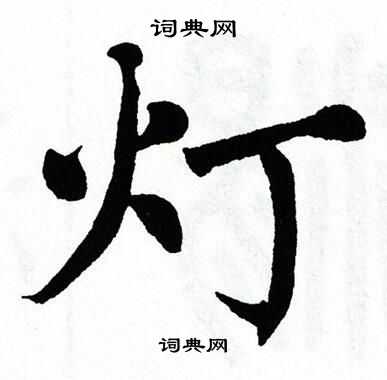 词典网
灯
词典网